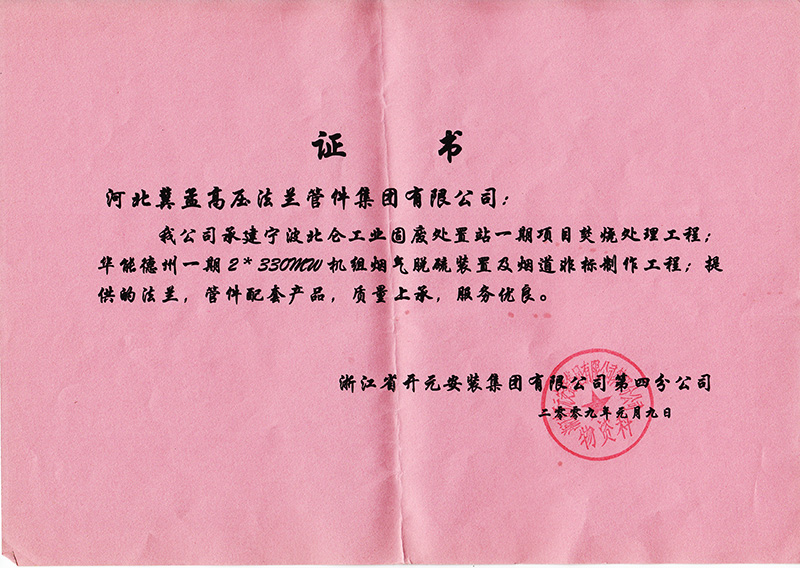 证 书
河北冀孟高压法兰管件集团有限公司：
我公司承建宁波北仑工业固废处置站一期项目焚烧处理工程；
华能德州一期2*330MW机组烟气脱硫装置及烟道非标制作工程；提
供的法兰，管件配套产品，质量上承，服务优良。
浙江省开元安装集团有限公司第四分公司
二零零九年元月九日
物资科